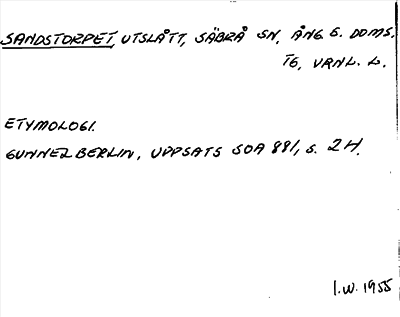 SANDSTORPET, UTSLÅTT, SÄBRÅ SN, ÅNG S. DOMS.
TG, VRNL. L.
ETYMOLOGI.
GUNNEL BERLIN, UPPSATS SOA 881, S. 24.
I.W. 1955